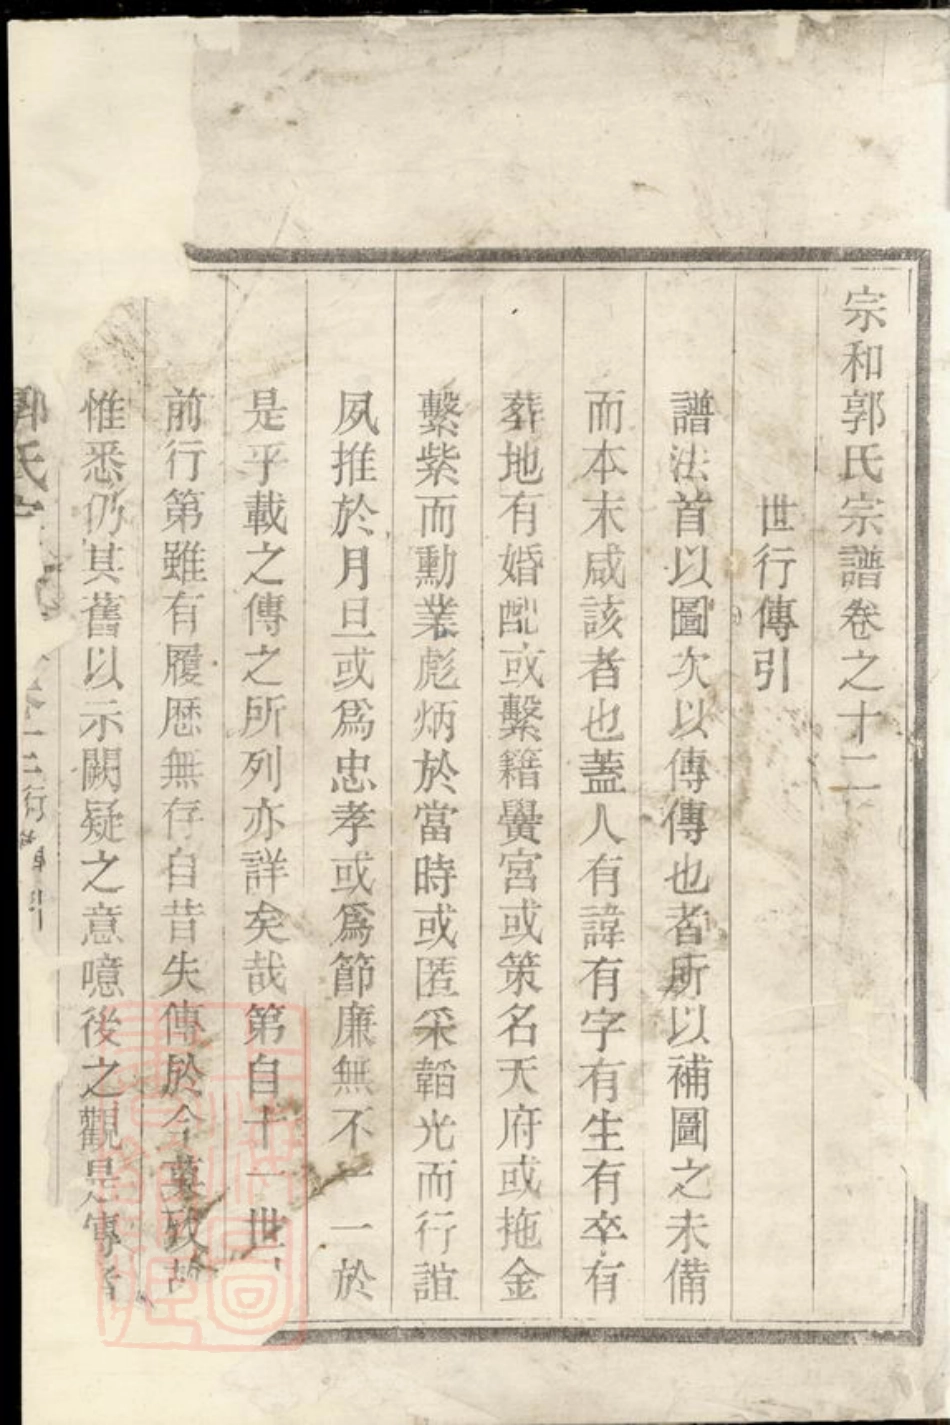 宗和郭氏宗譜卷之十二
世行傳引
譜法首以圖次以傳傳也者所以補圖之未備
而本末咸該者也蓋人有諱有字有生有卒有
葬地有婚配或繫籍黌宮或策名天府或拖金
繫紫而勳業彪炳於當時或匿采韜光而行誼
夙推於月旦或爲忠孝或爲節廉無不一一於
是乎載之傳之所列亦詳矣哉第自十一世
前行第雖有履歷無存自昔失傳於今莫攷故
惟悉仍其舊以示闕疑之意噫後之觀是傳者
郭氏宗
行傳引